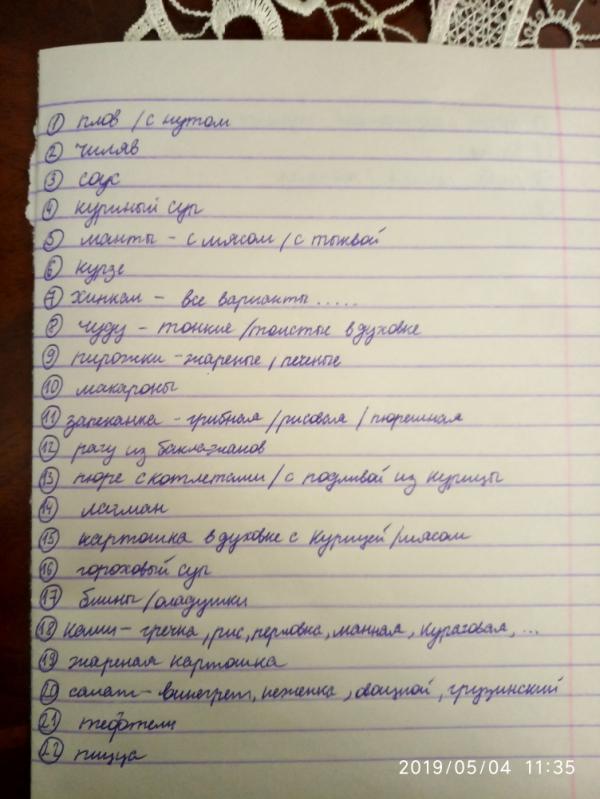 ① плов / с нутом
② чиляв
③ соус
④ куриный суп
⑤ манты - с мясом / с тыквой
⑥ курзе
⑦ хинкал - все варианты .....
⑧ чуду - тонкие / толстые в духовке
⑨ пирожки - жареные, печеные
⑩ макароны
⑪ запеканка - грибная / рисовая / пюрешная
⑫ рагу из баклажанов
⑬ пюре с котлетами / с подливой из курицы
⑭ лагман
⑮ картошка в духовке с курицей / мясом
⑯ гороховый суп
⑰ блины / оладушки
⑱ каши - гречка, рис, перловка, манная, кураговая, ...
⑲ жареная картошка
⑳ салат - винегрет, неженка, овощной, грузинский
㉑ тефтели
㉒ пицца
2019/05/04 11:35